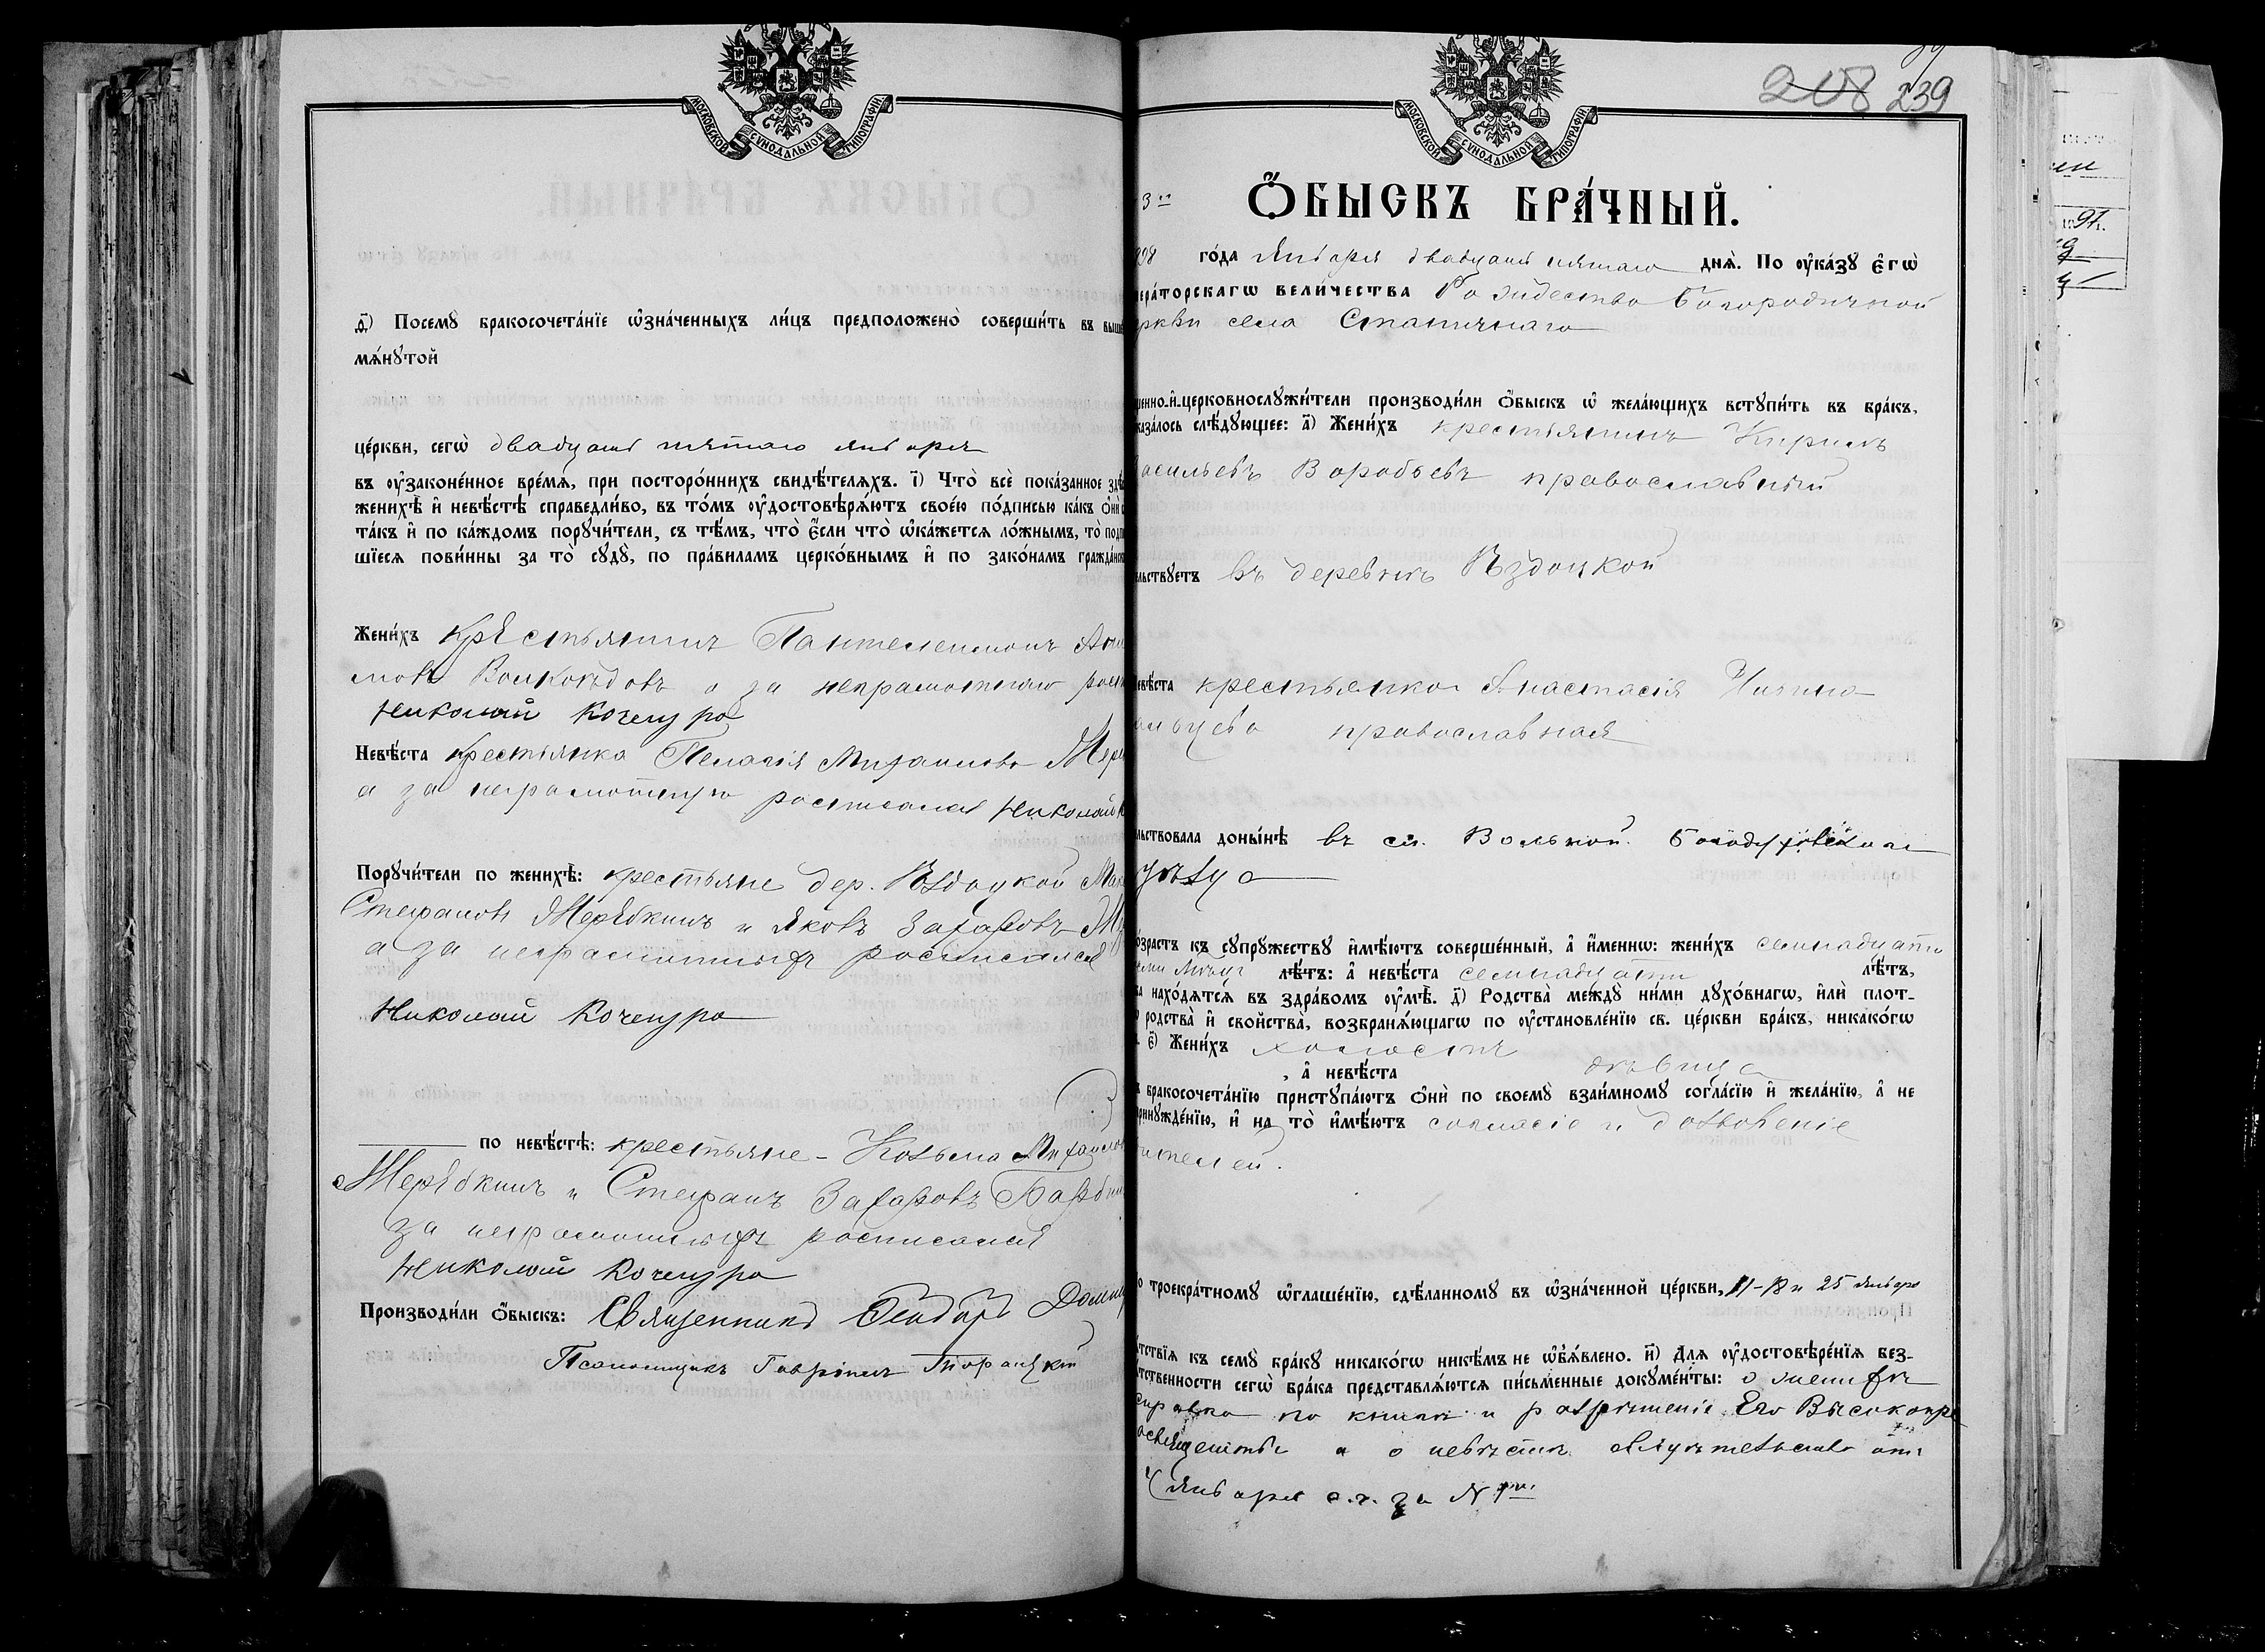 МОСКОВСКОЙ СУНОДАЛЬНОЙ ТИПОГРАФІИ
д҃) Посемꙋ бракосочета́нїе ѡ҆зна́ченныхъ ли́цъ предположено̀ соверши́ть въ выше
мѧ́нꙋтой
це́ркви, сегѡ̀ двадцать пятаго января
въ ᲂу҆законе́нное вре́мѧ, при посторо́ннихъ свидѣ́телѧхъ. і҃) Что̀ всѐ пока́занное здѣ
женихѣ̀ и҆ невѣ́стѣ справедли́во, въ то́мъ ᲂу҆достовѣрѧ́ютъ свое́ю по́дписью ка́къ ѻ҆нѝ с
та́къ и҆ по ка́ждомъ порꙋчи́тели, съ тѣ́мъ, что̀ є҆́сли что̀ ѡ҆ка́жетсѧ ло́жнымъ, то̀ подп
шїесѧ пови́нны за то̀ сꙋдꙋ̀, по пра́виламъ церко́внымъ и҆ по зако́намъ гражда́нск
Жени́хъ крестьянинъ Пантелеимонъ
мовъ а за неграмотнаго росп
Николай Кочемура
Невѣ́ста крестьянка Пелагія Михаилова Мер
а за неграмотную росписался Николай К
Порꙋчи́тели по женихѣ̀: крестьяне дер. Ѣздоцкой Мак
Стефановъ Мерѣбкинъ и Яковъ Захаровъ М
а за неграмотныхъ росписался
Николай Кочемура
по невѣ́стѣ: крестьяне - Козьма Михаилов
Мерѣбкинъ и Стефанъ Захаровъ
за неграмотныхъ росписался
Николай Кочемура
Производи́ли ѻ҆́быскъ: Священникъ Ѳеодоръ
Псаломщикъ Гавріилъ
208 239
МОСКОВСКОЙ СУНОДАЛЬНОЙ ТИПОГРАФІИ
3
Ѻ҆́БЫСКЪ БРА́ЧНЫЙ.
98 го́да Января двадцать пятаго днѧ̀. По ᲂу҆ка́зꙋ є҆гѡ̀
пера́торскагѡ вели́чества Рождество Богородичной
ркви села Статичнаго
щенно-и҆-церковнослꙋжи́тели производи́ли ѻ҆́быскъ ѡ҆ жела́ющихъ встꙋпи́ть въ бра́къ,
каза́лось слѣ́дꙋющее: а҃) Жени́хъ крестьянинъ Кирилъ
асильевъ Воробьевъ православный
ельствꙋетъ въ деревнѣ Ѣздоцкой
евѣ́ста крестьянка Анастасія
альцева православная
льствовала доны́нѣ въ сл. Вольной. Богодуховскаго
уѣзда
о́зрастъ къ сꙋпрꙋжествꙋ и҆мѣ́ютъ соверше́нный, а҆ и҆́меннѡ: жени́хъ семнадцати
лѣ́тъ: а҆ невѣ́ста семнадцати лѣ́тъ,
ба нахо́дѧтсѧ въ здра́вомъ ᲂу҆мѣ̀. д҃) Родства̀ междꙋ̀ ни́ми дꙋхо́внагѡ, и҆лѝ плот-
ѡ родства̀ и҆ свойства̀, возбранѧ́ющагѡ по ᲂу҆становле́нїю св. це́ркви бра́къ, никако́гѡ
є҃) Жени́хъ холостъ
, а҆ невѣ́ста дѣвица
ъ бракосочета́нїю пристꙋпа́ютъ ѻ҆нѝ по своемꙋ̀ взаи́мномꙋ согла́сїю и҆ жела́нїю, а҆ не
принꙋжде́нїю, и҆ на то̀ и҆мѣ́ютъ согласіе и дозволеніе
ителей.
о троекра́тномꙋ ѡ҆глаше́нїю, сдѣ́ланномꙋ въ ѡ҆зна́ченной це́ркви, 11-18 и 25 января
тствїѧ къ семꙋ̀ бра́кꙋ никако́гѡ никѣ́мъ не ѡ҆б̾ѧ́влено. и҃) Длѧ ᲂу҆достовѣре́нїѧ без-
ѧтственности сегѡ̀ бра́ка представлѧ́ютсѧ пи́сьменные докꙋме́нты: о женихѣ
справка по книгѣ и разрѣшеніе Его Высокопре
освященства а о невѣстѣ свидѣтельство отъ
января с.г. за №